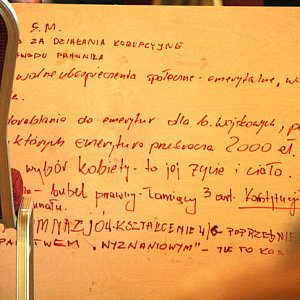 G.M.
ZA DZIAŁANIA KORUPCYJNE
WODU PRAWNIKA
walne ubezpieczenia społeczne - emerytalne, w
e.
dorabianie do emerytur dla b. wojskowych, p
których emerytura przekracza 2000 zł.
wybór kobiety - to jej życie i ciało.
- bubel prawny - łamiący 3 art. Konstytucji
unału.
IMNAZJÓW. KSZTAŁCENIE 4/8 POPRZEDNIE
PAŃSTWEM „WYZNANIOWYM" - NIE TO KO